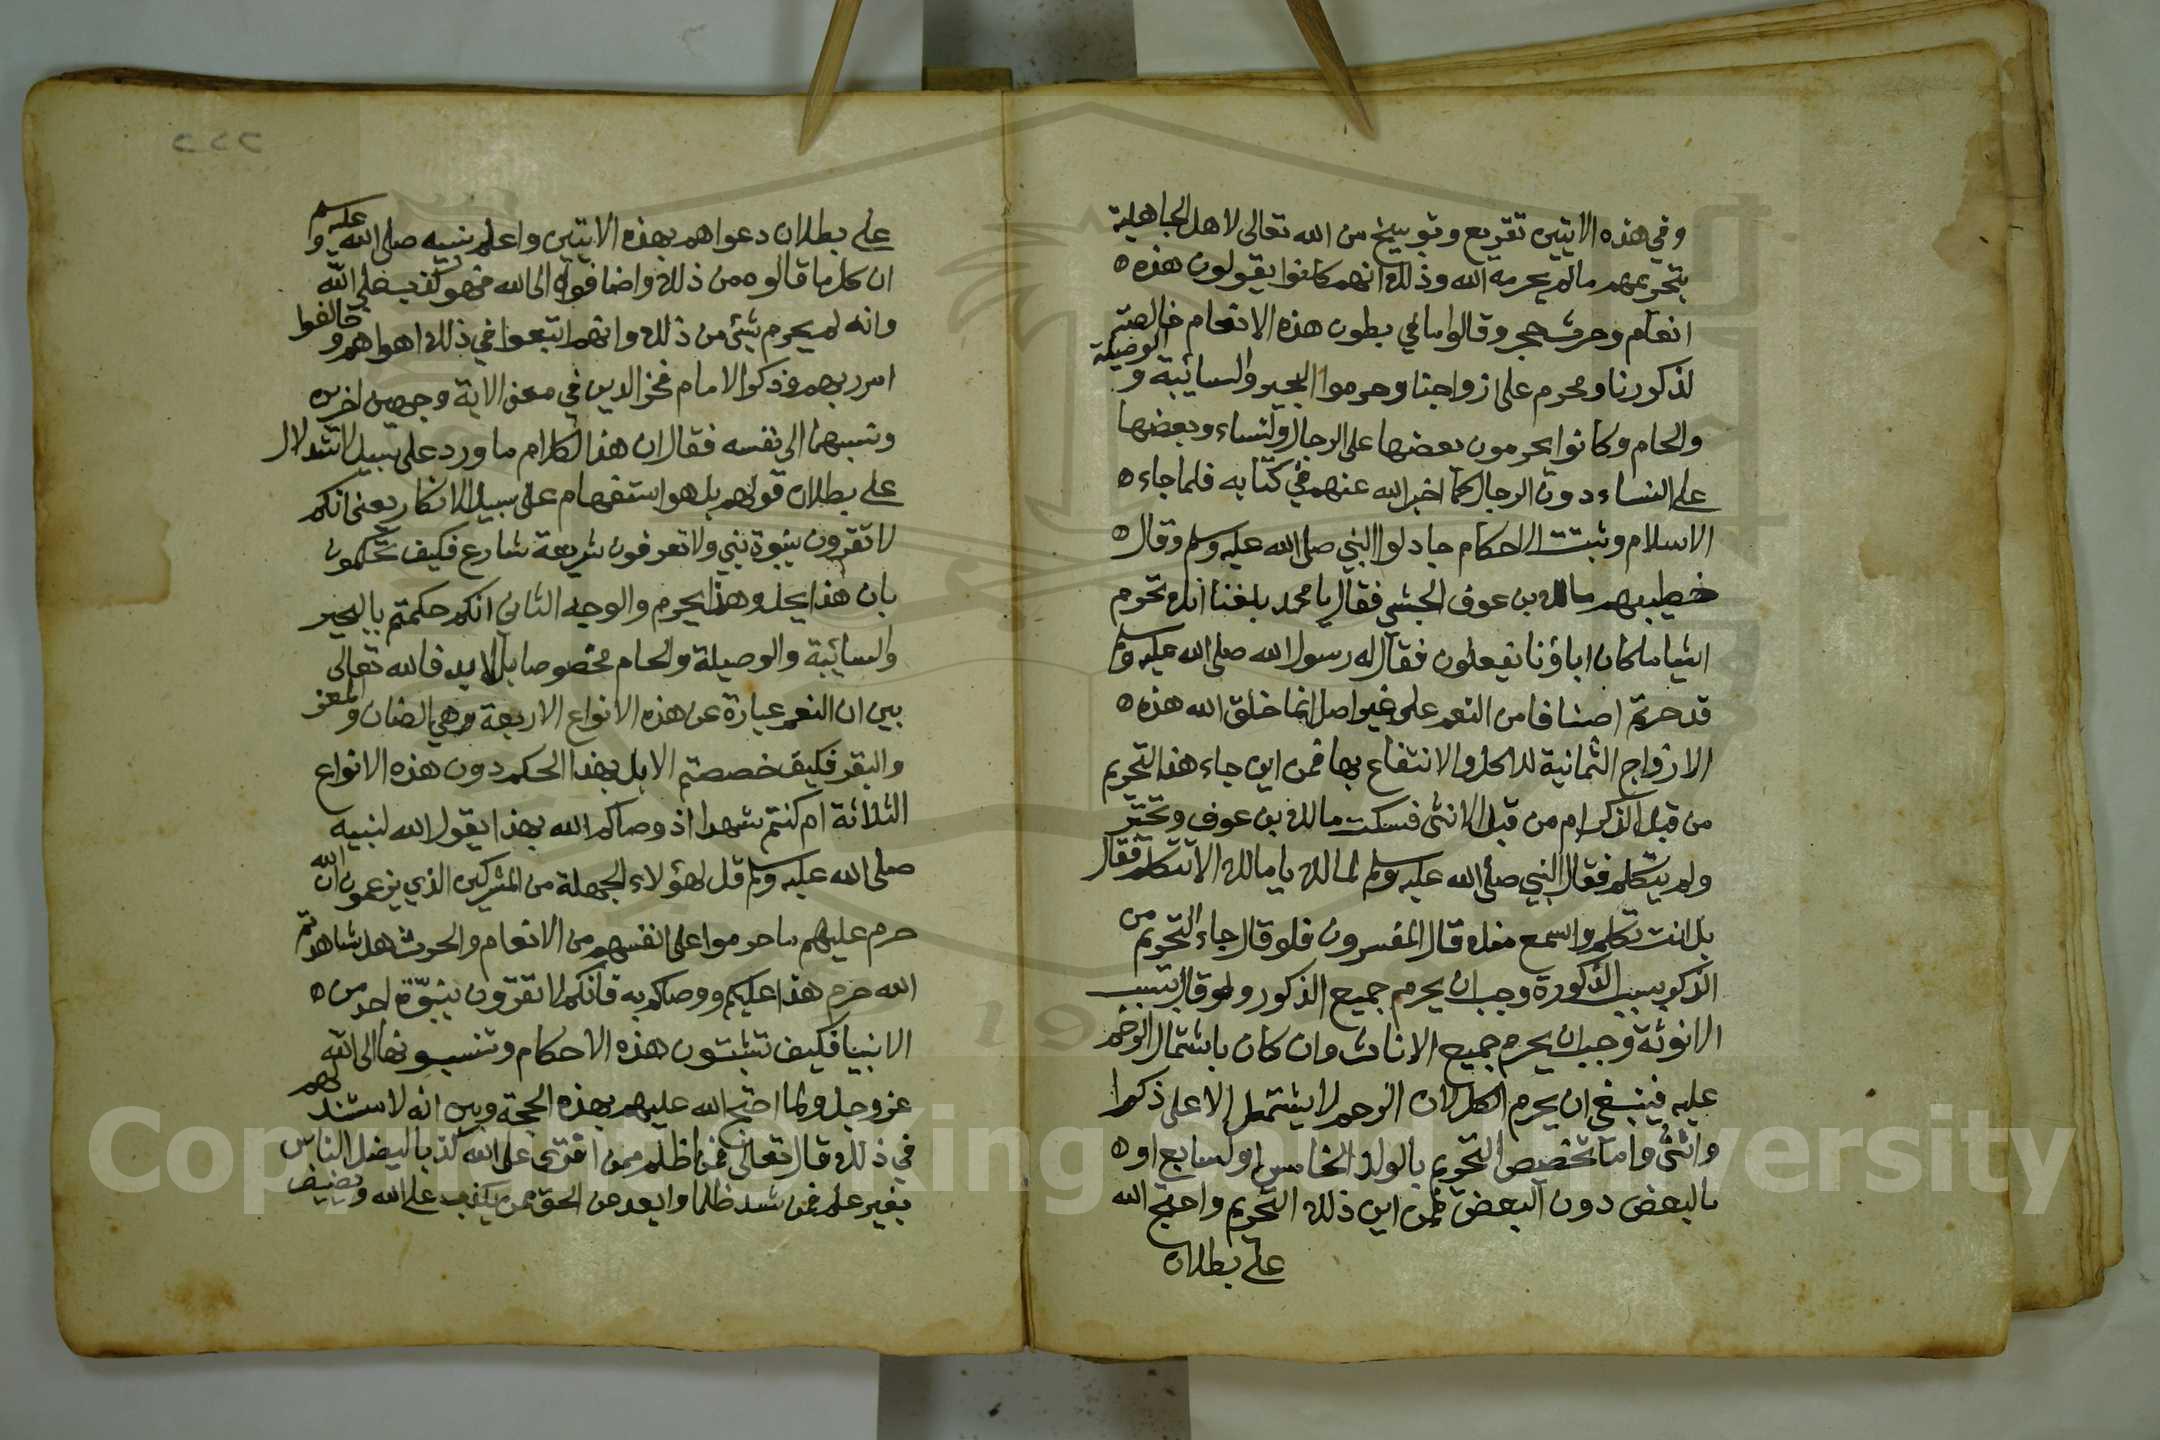 وفي هذه الايتين تقريع وتوبيخ من الله تعالى لاهل الجاهلية
بتحريمهم مالم يحرمه الله وذلك انهم كانوا يقولون هذه ه
انعام وحرث حجر وقالوا ما في بطون هذه الانعام خالصة
لذكورنا ومحرم على ازواجنا وحرموا البحير والسائبة والوصيلة
والحام وكانوا يحرمون بعضها على الرجال والنساء وبعضها
على النساء دون الرجال كما اخبر الله عنهم في كتابه فلما جاء ه
الاسلام وثبتت الاحكام جادلوا النبي صلى الله عليه وسلم وقال ه
خطيبهم مالك بن عوف الجشمي فقال يا محمد بلغنا انك تحرم
اشيا ما كان اباؤنا يفعلون فقال له رسول الله صلى الله عليه وسلم
قد حرمتم اصنافا من النعم على غير اصل انما خلق الله هذه ه
الازواج الثمانية للاكل والانتفاع بها فمن اين جاء هذا التحريم
من قبل الذكر ام من قبل الانثى فسكت مالك بن عوف وتحير
ولم يتكلم فقال النبي صلى الله عليه وسلم لمالك يا مالك الا تتكلم فقال
بل انت تكلم واسمع منك قال المفسرون فلو قال جاء التحريم من
الذكر بسبب الذكورة وجب ان يحرم جميع الذكور ولو قال بسبب
الانوثة وجب ان يحرم جميع الاناث وان كان باشتمال الرحم
عليه فينبغي ان يحرم الكل لان الرحم لا يشتمل الا على ذكر او
وانثى واما تخصيص التحريم بالولد الخامس او السابع او ه
بالبعض دون البعض فمن اين ذلك التحريم واحتج الله
على بطلان
٢٢٢
على بطلان دعواهم بهذه الايتين واعلم نبيه صلى الله عليه وسلم
ان كل ما قالوه من ذلك واضافوه الى الله فهو كذب على الله
وانه لم يحرم شئ من ذلك وانهم اتبعوا في ذلك اهواهم وخالفوا
امر ربهم وذكر الامام فخر الدين في معنى الاية وجهين اخرين
ونسبهما الى نفسه فقال ان هذا الكلام ما ورد على سبيل الاستدلال
على بطلان قولهم بل هو استفهام على سبيل الانكار يعني انكم
لا تقرون بنبوة نبي ولا تعرفون شريعة شارع فكيف تحكمون
بان هذا يحل وهذا يحرم والوجه الثاني انكم حكمتم بالبحير
والسائبة والوصيلة والحام مخصوصا بالابل فالله تعالى
بين ان النعم عبارة عن هذه الانواع الاربعة وهي الضان والمعز
والبقر فكيف خصصتم الابل بهذا الحكم دون هذه الانواع
الثلاثة ام كنتم شهدا اذ وصاكم الله بهذا يقول الله لنبيه
صلى الله عليه وسلم قل لهؤلاء الجهلة من المشركين الذي يزعمون ان الله
حرم عليهم ما حرموا على انفسهم من الانعام والحرث هل شاهدتم
الله حرم هذا عليكم ووصاكم به فانكم لا تقرون بنبوة احد من ه
الانبيا فكيف تثبتون هذه الاحكام وتنسبونها الى الله
عز وجل ولما احتج الله عليهم بهذه الحجة وبين انه لا مستند لهم
في ذلك قال تعالى فمن اظلم ممن افترى على الله كذبا ليضل الناس
بغير علم فمن اشد ظلما وابعد عن الحق ممن يكذب على الله ويضيف
Copyright © King Saud University